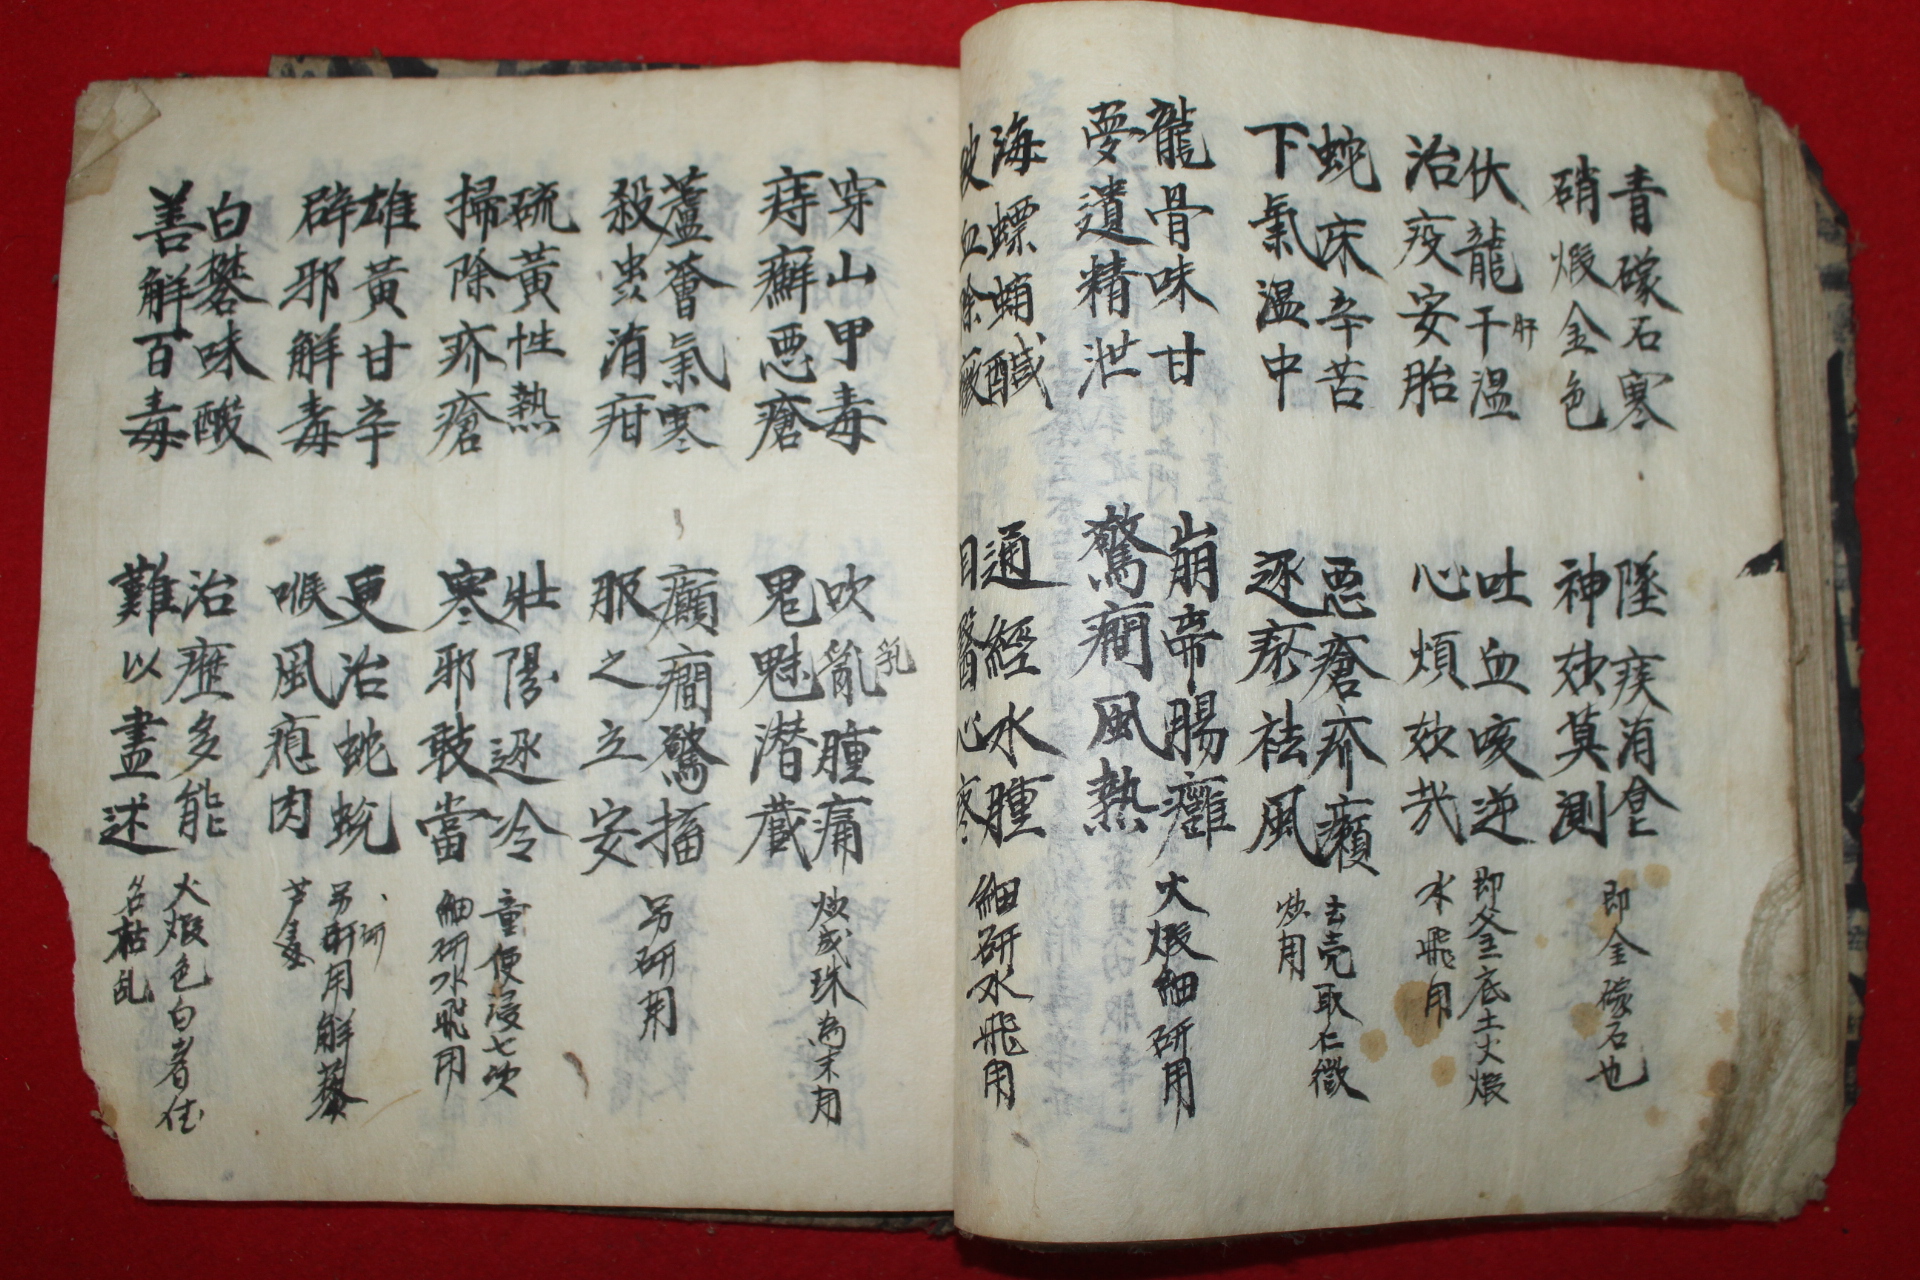 青礞石寒
硝煅金色
墜痰消食
神效莫測
即金礞石也
伏龍干溫
肝
治疫安胎
吐血咳逆
心煩效哉
即釜底土火煅
水飛用
蛇床辛苦
下氣溫中
惡瘡疥癩
逐瘀祛風
去壳取仁微
炒用
龍骨味甘
夢遺精泄
崩帝腸癰
驚癎風熱
火煅細研用
海螵蛸醎
破血除癥
通經水腫
目醫心疼
細研水飛用
穿山甲毒
痔癬惡瘡
吹亂腫痛
乳
鬼魅潛藏
炒成珠為末用
蘆薈氣寒
殺虫消疳
癲癎驚搐
服之立安
另研用
硫黃性熱
掃除疥瘡
壯陽逐冷
寒邪敢當
童便浸七次
細研水飛用
雄黃甘辛
辟邪解毒
更治蛇蛻
喉風瘜肉
研
另研用解藜
芦毒
白礬味酸
善解百毒
治症多能
難以盡述
火煅色白者佳
名枯乱